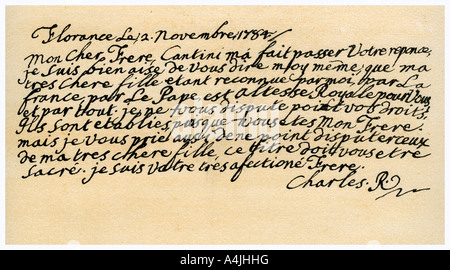 Florance Le 2. Novembre, 1784
Mon Cher Frere, Cantini ma fait passer Votre reponce,
je suis bien aise de vous dire moy mème, que ma
tres chere fille etant reconnue par moi, par La
france, par Le Pape est altesse Royale pour Vous
et par tout. je ne vous dispute point vos droits,
Ils sont etablies puisque Vous etes Mon Frere.
mais je vous prie aussi de ne point disputer ceux
de ma tres chere fille, ce titre doit vous etre
Sacré. je suis votre tres afectioné Frere.
Charles. R
alamy stock photo
a alamy
Image ID: A4JHHG
www.alamy.com